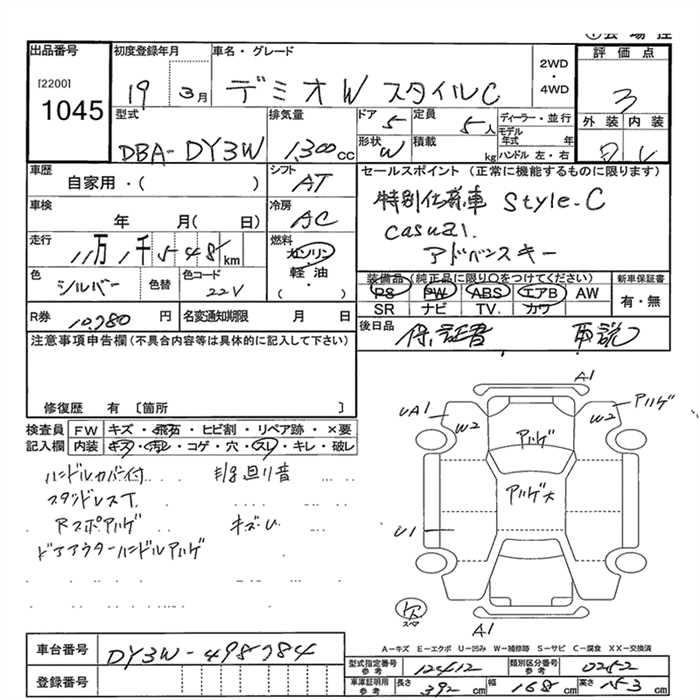 出品番号
[2200]
1045
初度登録年月
19 3月
車名・グレード
デミオW スタイルC
2WD
・
4WD
評価点
3
外装 内装
型式
DBA-DY3W
排気量
1,300cc
ドア
5
定員
5人
形状
W
積載
kg
ディーラー・並行
モデル年式 年
ハンドル 左・右
車歴
自家用・( )
シフト
AT
セールスポイント (正常に機能するものに限ります)
特別仕様車 Style-C
casual.
アドバンスキー
車検
年 月( 日)
冷房
AC
走行
11万1千548km
燃料
ガソリン
・
軽油
・
( )
色
シルバー
色替
色コード
22V
装備品(純正品に限り○をつけてください)
PS PW ABS エアB AW
SR ナビ TV カワ
新車保証書
有・無
R券
10,780円
名変通知期限 月 日
後日品
保証書 取説
注意事項申告欄(不具合内容等は具体的に記入して下さい)
修復歴 有 〔箇所 〕
検査員記入欄
FW キズ・飛石・ヒビ割・リペア跡・×要
内装 キズ・汚レ・コゲ・穴・スレ・キレ・破レ
ハンドルカバー付
スタッドレスT.
Rスポアルゲ
ドアアウターハンドルアルゲ
キズ・U
A1
UA1
W2
W2
アルゲ
アルゲ
アルゲ大
U1
スペア
A1
A－キズ E－エクボ U－凹み W－補修跡 S－サビ C－腐食 XX－交換済
車台番号
DY3W-498784
登録番号
型式指定番号
参考
12412
類別区分番号
参考
0252
車庫証明用
参考
長さ 392 cm 幅 168 cm 高さ 153 cm